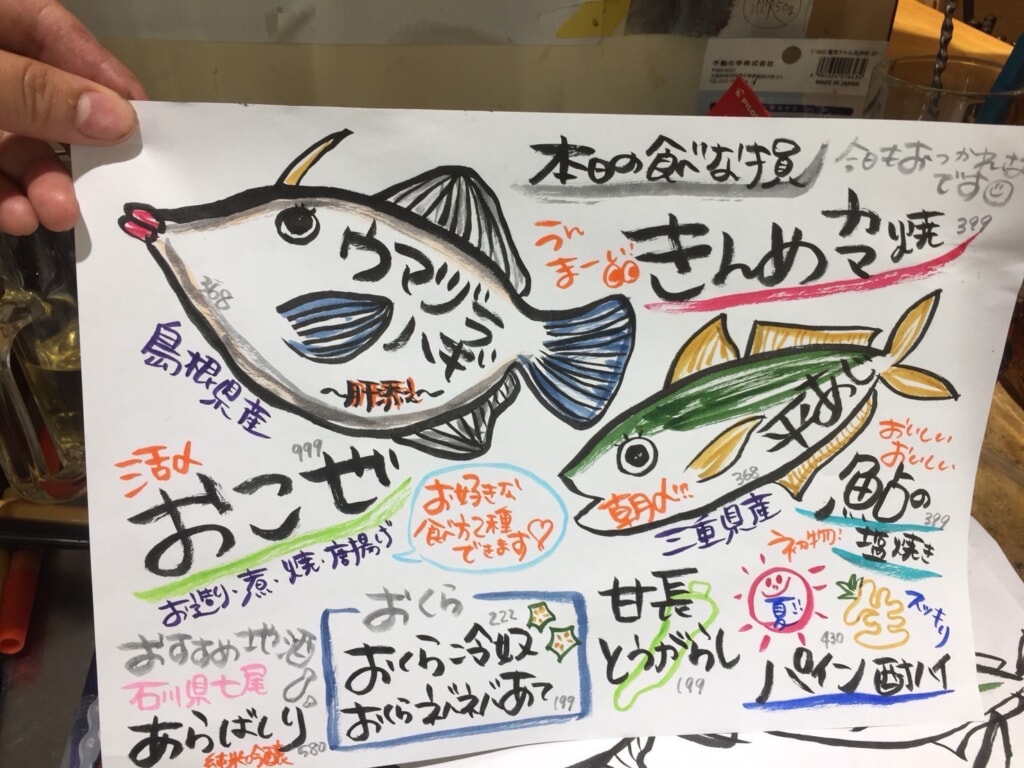 本日の食べな損
今日もおつかれさまです
ウマヅラハギ
～肝添え～
368
島根県産
うんまーい
きんめカマ焼
399
平あじ
368
朝〆!!
三重県産
活〆
おこぜ
999
お造り・煮・焼・唐揚げ
お好きな
食べ方2種
できます♡
おいしい
おいしい
鮎の
塩焼き
399
おすすめ地酒
石川県七尾
あらばしり
純米吟醸
580
おくら
おくら冷奴
222
おくらネバネバあて
199
甘長
とうがらし
199
初物!
夏!!
スッキリ
パイン酎ハイ
430
不動化学株式会社
MADE IN JAPAN